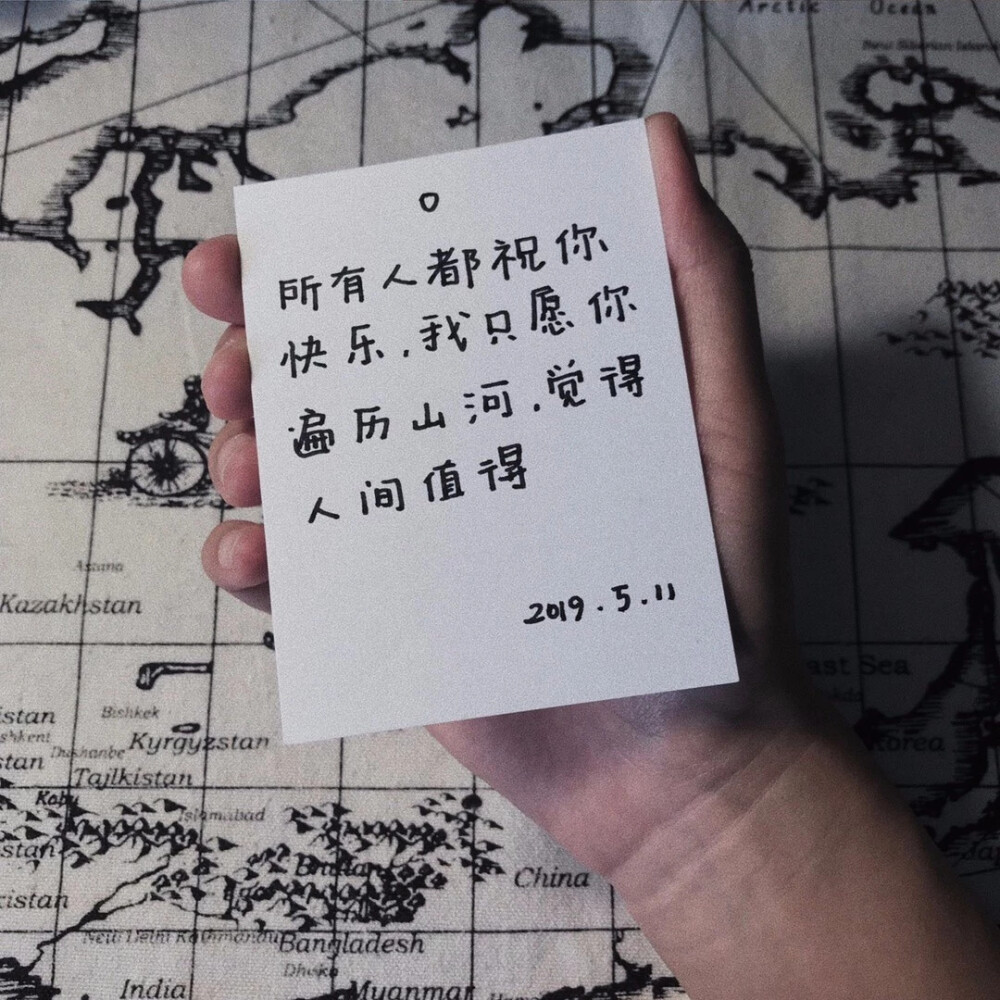 Arctic Ocean
New Siberian Islands
所有人都祝你
快乐.我只愿你
遍历山河.觉得
人间值得
2019.5.11
Astana
Kazakhstan
East Sea
istan
Bishkek
shkent
Dushanbe
Kyrgyzstan
Korea
stan
Tajlkistan
Kabu
Islamabad
stan
China
kistan
New Delhi Kathmandu
Bangladesh
Dhaka
India
Myanmar